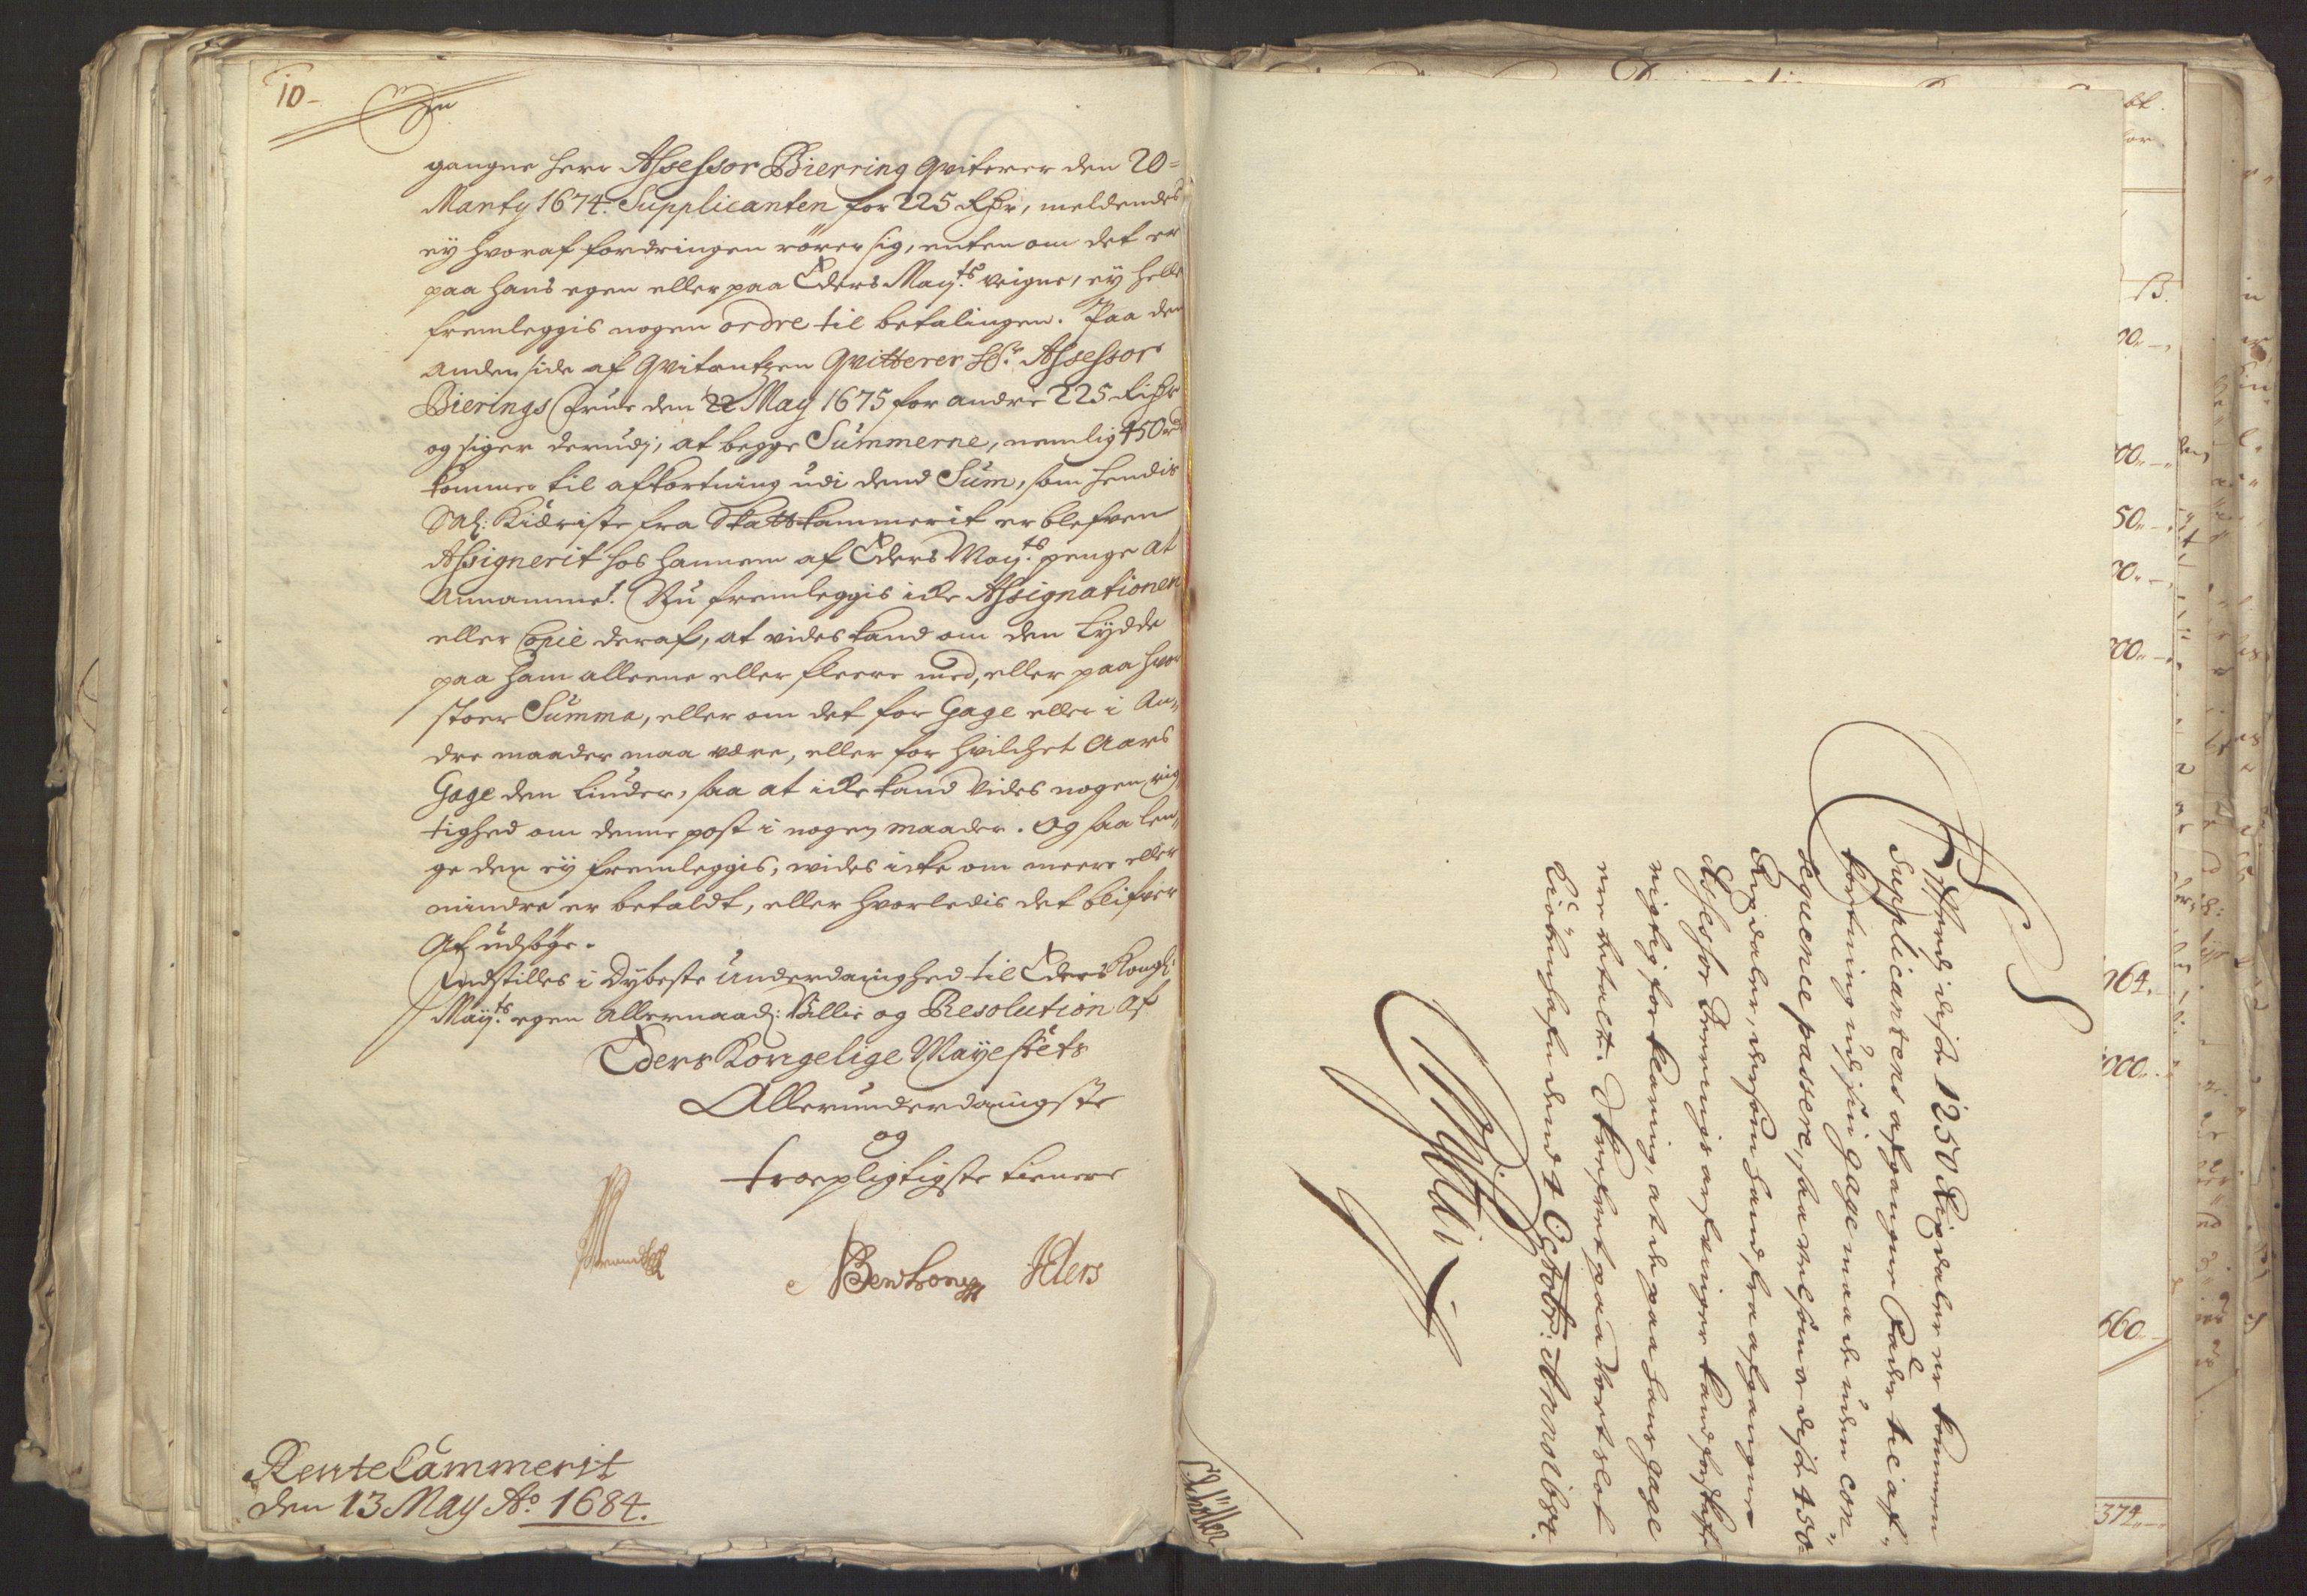 10-
gangne herr Assessor Bierring qviterer den 20=
Marty 1674. Supplicanten for 225 Rdr, meldendes
ey hvoraf fordringen rörer sig, enten om det er
paa hans egen eller paa Eders May:ts veigne, ey heller
fremleggis nogen ordre til betalingen. Paa den
anden side af qvitantzen qvitterer Hr. Assessor
Bierings Frue den 22 May 1675 for andre 225 Rdr
og siger derudj, at begge Summerne, nemlig 450 rd
kommer til afkortning udi dend Sum, som hendis
Sal: Kiæriste fra Skattkammerit er blefven
Assignerit hos hannem af Eders May:ts penge at
Annamme. Nu fremleggis icke Assignationen
eller Copie deraf, at vides kand om den lydde
paa ham alleene eller fleere med, eller paa hvor
stoer Summa, eller om det for Gage eller i An„
dre maader maa være, eller for hvilchet Aars
Gage den liuder, saa at icke kand vides nogen rig„
tighed om denne post i nogen maader. Og saa len„
ge den ey fremleggis, vides icke om meere eller
mindre er betaldt, eller hvorledis det blifver
At udsöge.
Indstilles i dybeste underdanighed til Eders Kongl:
May:ts egen allernaad: Villie og Resolution af
Eders Kongelige Mayestets
Allerunderdanigste
og
troepligtigste tienere
Brandt
Benthon Iders
RenteCammerit
den 13 May Ao. 1684.
Efftersom disse 1250 Rigdaler er kommen
Supplicantens afgangne Fader til af„
kortning udj sin gage maa de uden con„
seqvence passere, saa velsom disse 450
Rigdaler, dersom hand fra afgangne
Assessor Bierrings arfvinger kand forskaffe
rigtig forklaring, at de paa hans gage
ere betalt. Skrefvet paa vort slot
Kiöbenhafn dend 4 Octobr: Anno 1684.
Christian
Schöller